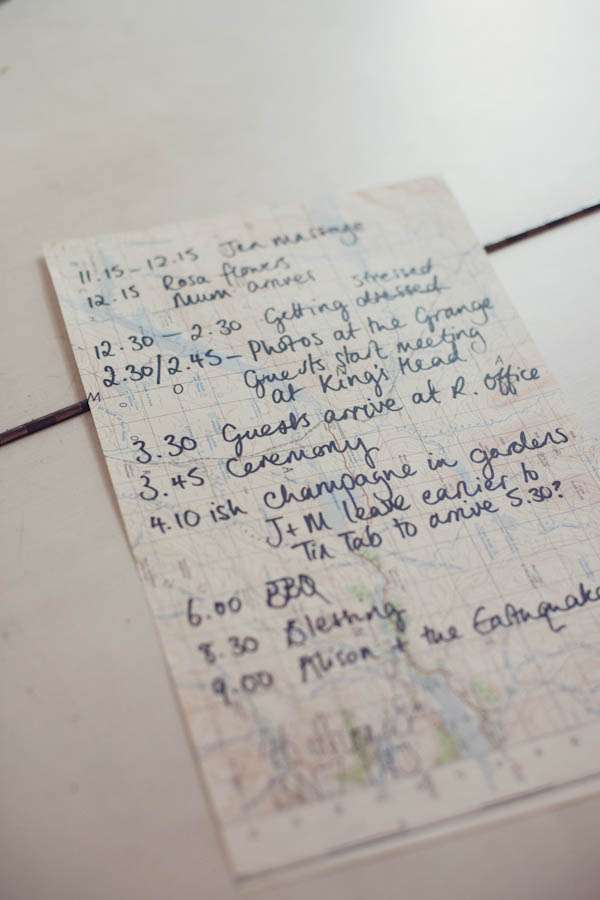 11.15 – 12.15 Jen massage
12.15 Rosa flowers
Mum arrives
stressed
12.30 – 2.30 Getting dressed
2.30/2.45 – Photos at the Grange
Guests start meeting
at King's Head
3.30 Guests arrive at R. Office
3.45 Ceremony
4.10 ish champagne in gardens
J+M leave earlier to
Tin Tab to arrive 5.30?
6.00 BBQ
8.30 Blessing
9.00 Alison + the Earthquake